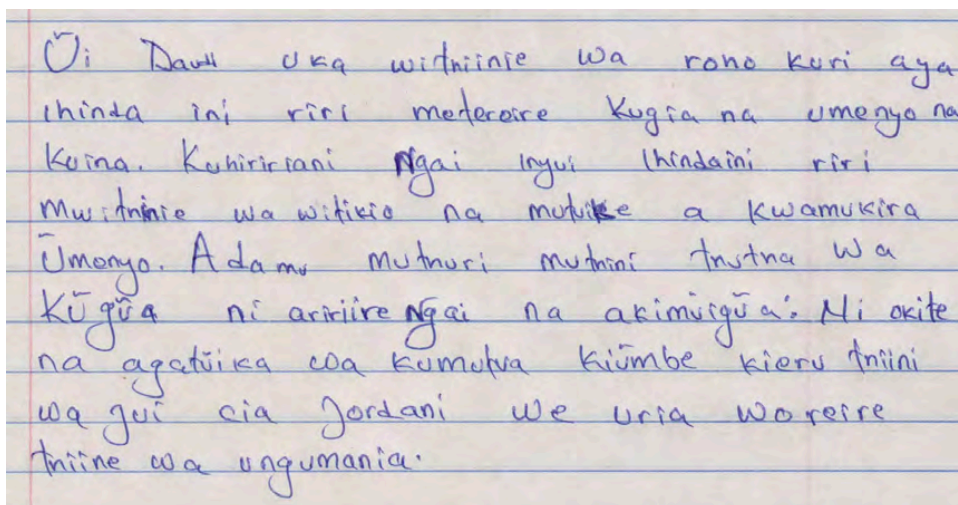 Ũi Daudi uka withiinie wa rono kuri aya
ihinda ini riri metereire Kugia na umenyo na
Kuina. Kuhiririani Ngai inyui ihindaini riri
Mwithinie wa witikio na mutuike a kwamukira
Ũmenyo. Adamu muthuri muthini thutha wa
Kũgũa ni aririire Ngai na akimũigũa: Ni okite
na agatũika wa kumutua kiũmbe kieru thiini
wa jui cia Jordani we uria woreire
thiine wa ungumania.